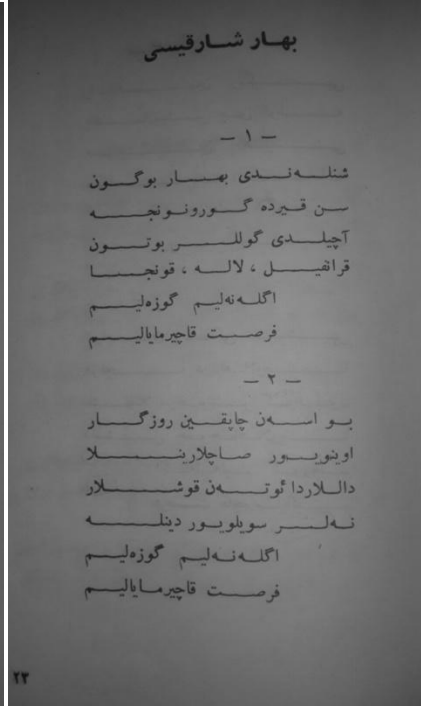 بهار شارقیسی
– ۱ –
شنله‌ندی بهار بوگون
سن قیرده گورونونجه
آچیلدی گوللر بوتون
قرانفیل ، لاله ، قونجا
اگله‌نه‌لیم گوزه‌لیم
فرصت قاچیرمایالیم
– ۲ –
بو اسه‌ن چاپقین روزگار
اوینویور صاچلارینلا
داللاردا ئوته‌ن قوشلار
نه‌لر سویلویور دینله
اگله‌نه‌لیم گوزه‌لیم
فرصت قاچیرمایالیم
۲۳